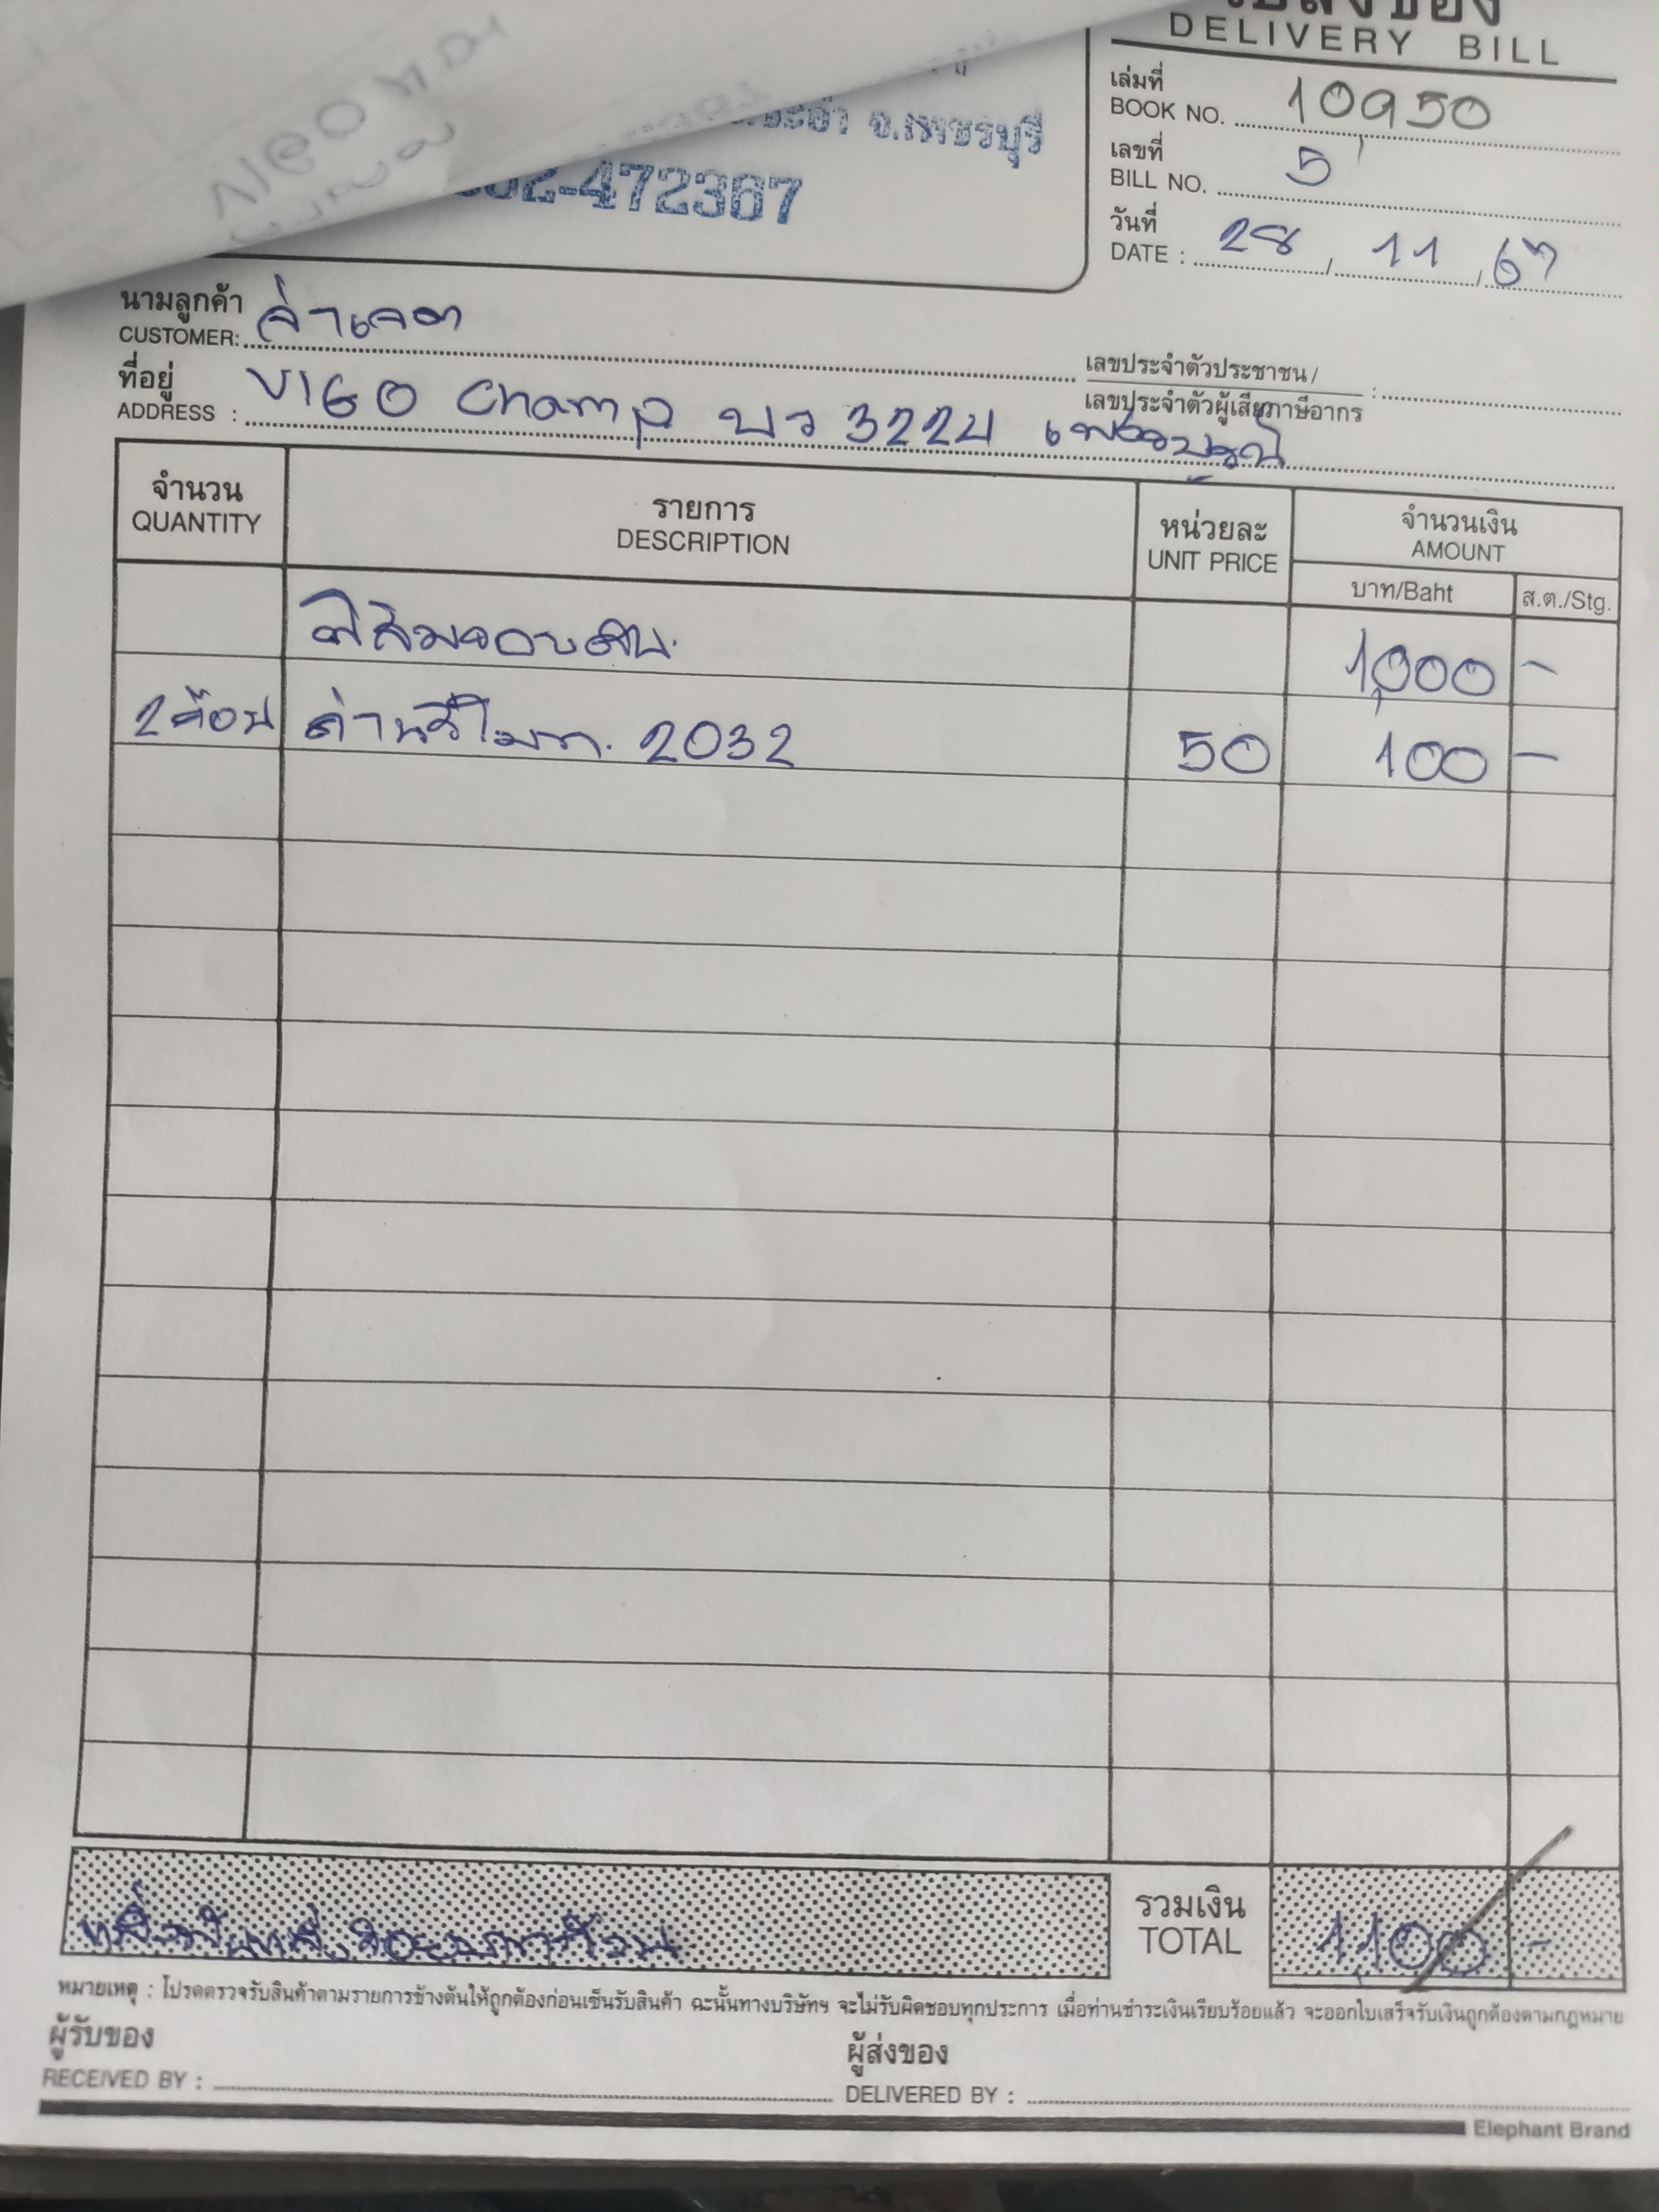 ใบส่งของ
DELIVERY BILL
เล่มที่
BOOK NO. 10950
เลขที่
BILL NO. 5
วันที่
DATE : 28 / 11 / 67
จ.เพชรบุรี
-472367
นามลูกค้า
CUSTOMER: จ่าเจต
ที่อยู่
ADDRESS : VIGO Champ บว 3224 เพชรบูรณ์
เลขประจำตัวประชาชน /
เลขประจำตัวผู้เสียภาษีอากร :
จำนวน
QUANTITY
รายการ
DESCRIPTION
หน่วยละ
UNIT PRICE
จำนวนเงิน
AMOUNT
บาท/Baht
ส.ต./Stg.
1,000 -
2 ก้อน ถ่านรีโมท. 2032 50 100 -
หนึ่งพันหนึ่งร้อยบาทถ้วน
รวมเงิน
TOTAL
1,100 -
หมายเหตุ : โปรดตรวจรับสินค้าตามรายการข้างต้นให้ถูกต้องก่อนเซ็นรับสินค้า ฉะนั้นทางบริษัทฯ จะไม่รับผิดชอบทุกประการ เมื่อท่านชำระเงินเรียบร้อยแล้ว จะออกใบเสร็จรับเงินถูกต้องตามกฎหมาย
ผู้รับของ
RECEIVED BY :
ผู้ส่งของ
DELIVERED BY :
Elephant Brand